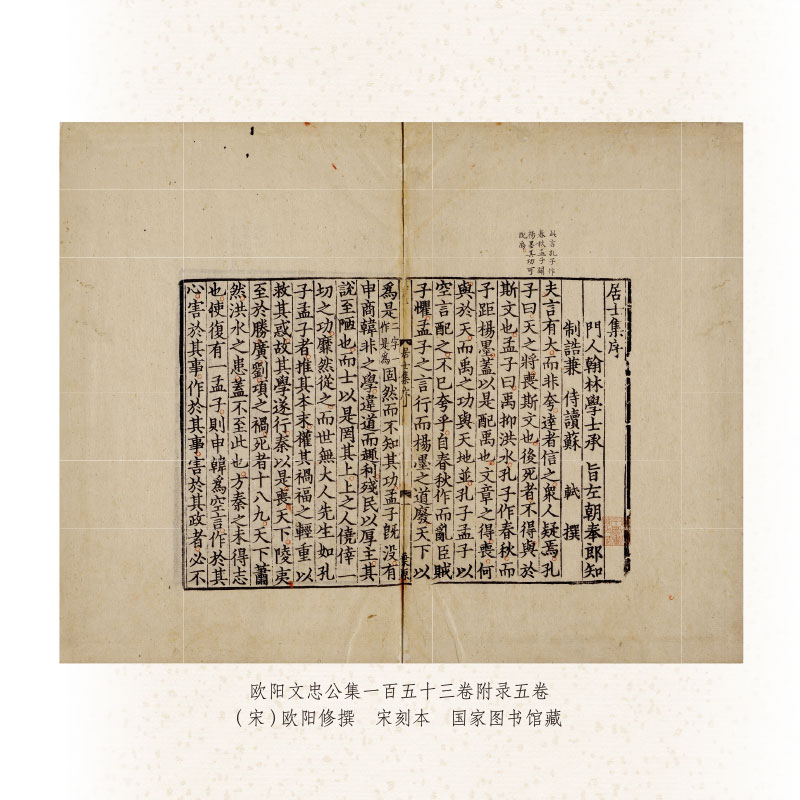 此言孔子作
春秋孟子闢
揚墨其功可
配禹
居士集序
門人翰林學士承　旨左朝奉郎知
制誥兼　侍讀蘇　軾　撰
夫言有大而非夸達者信之衆人疑焉孔
子曰天之將喪斯文也後死者不得與於
斯文也孟子曰禹抑洪水孔子作春秋而
予距揚墨蓋以是配禹也文章之得喪何
與於天而禹之功與天地並孔子孟子以
空言配之不已夸乎自春秋作而亂臣賊
子懼孟子之言行而揚墨之道廢天下以
居士集序
為是二字一作是為固然而不知其功孟子旣没有
申商韓非之學違道而趣利殘民以厚主其
說至陋也而士以是罔其上上之人僥倖一
切之功靡然從之而世無大人先生如孔
子孟子者推其本末權其禍福之輕重以
救其惑故其學遂行秦以是喪天下陵夷
至於勝廣劉項之禍死者十八九天下蕭
然洪水之患蓋不至此也方秦之未得志
也使復有一孟子則申韓爲空言作於其
心害於其事作於其事害於其政者必不
欧阳文忠公集一百五十三卷附录五卷
（宋）欧阳修撰　宋刻本　国家图书馆藏